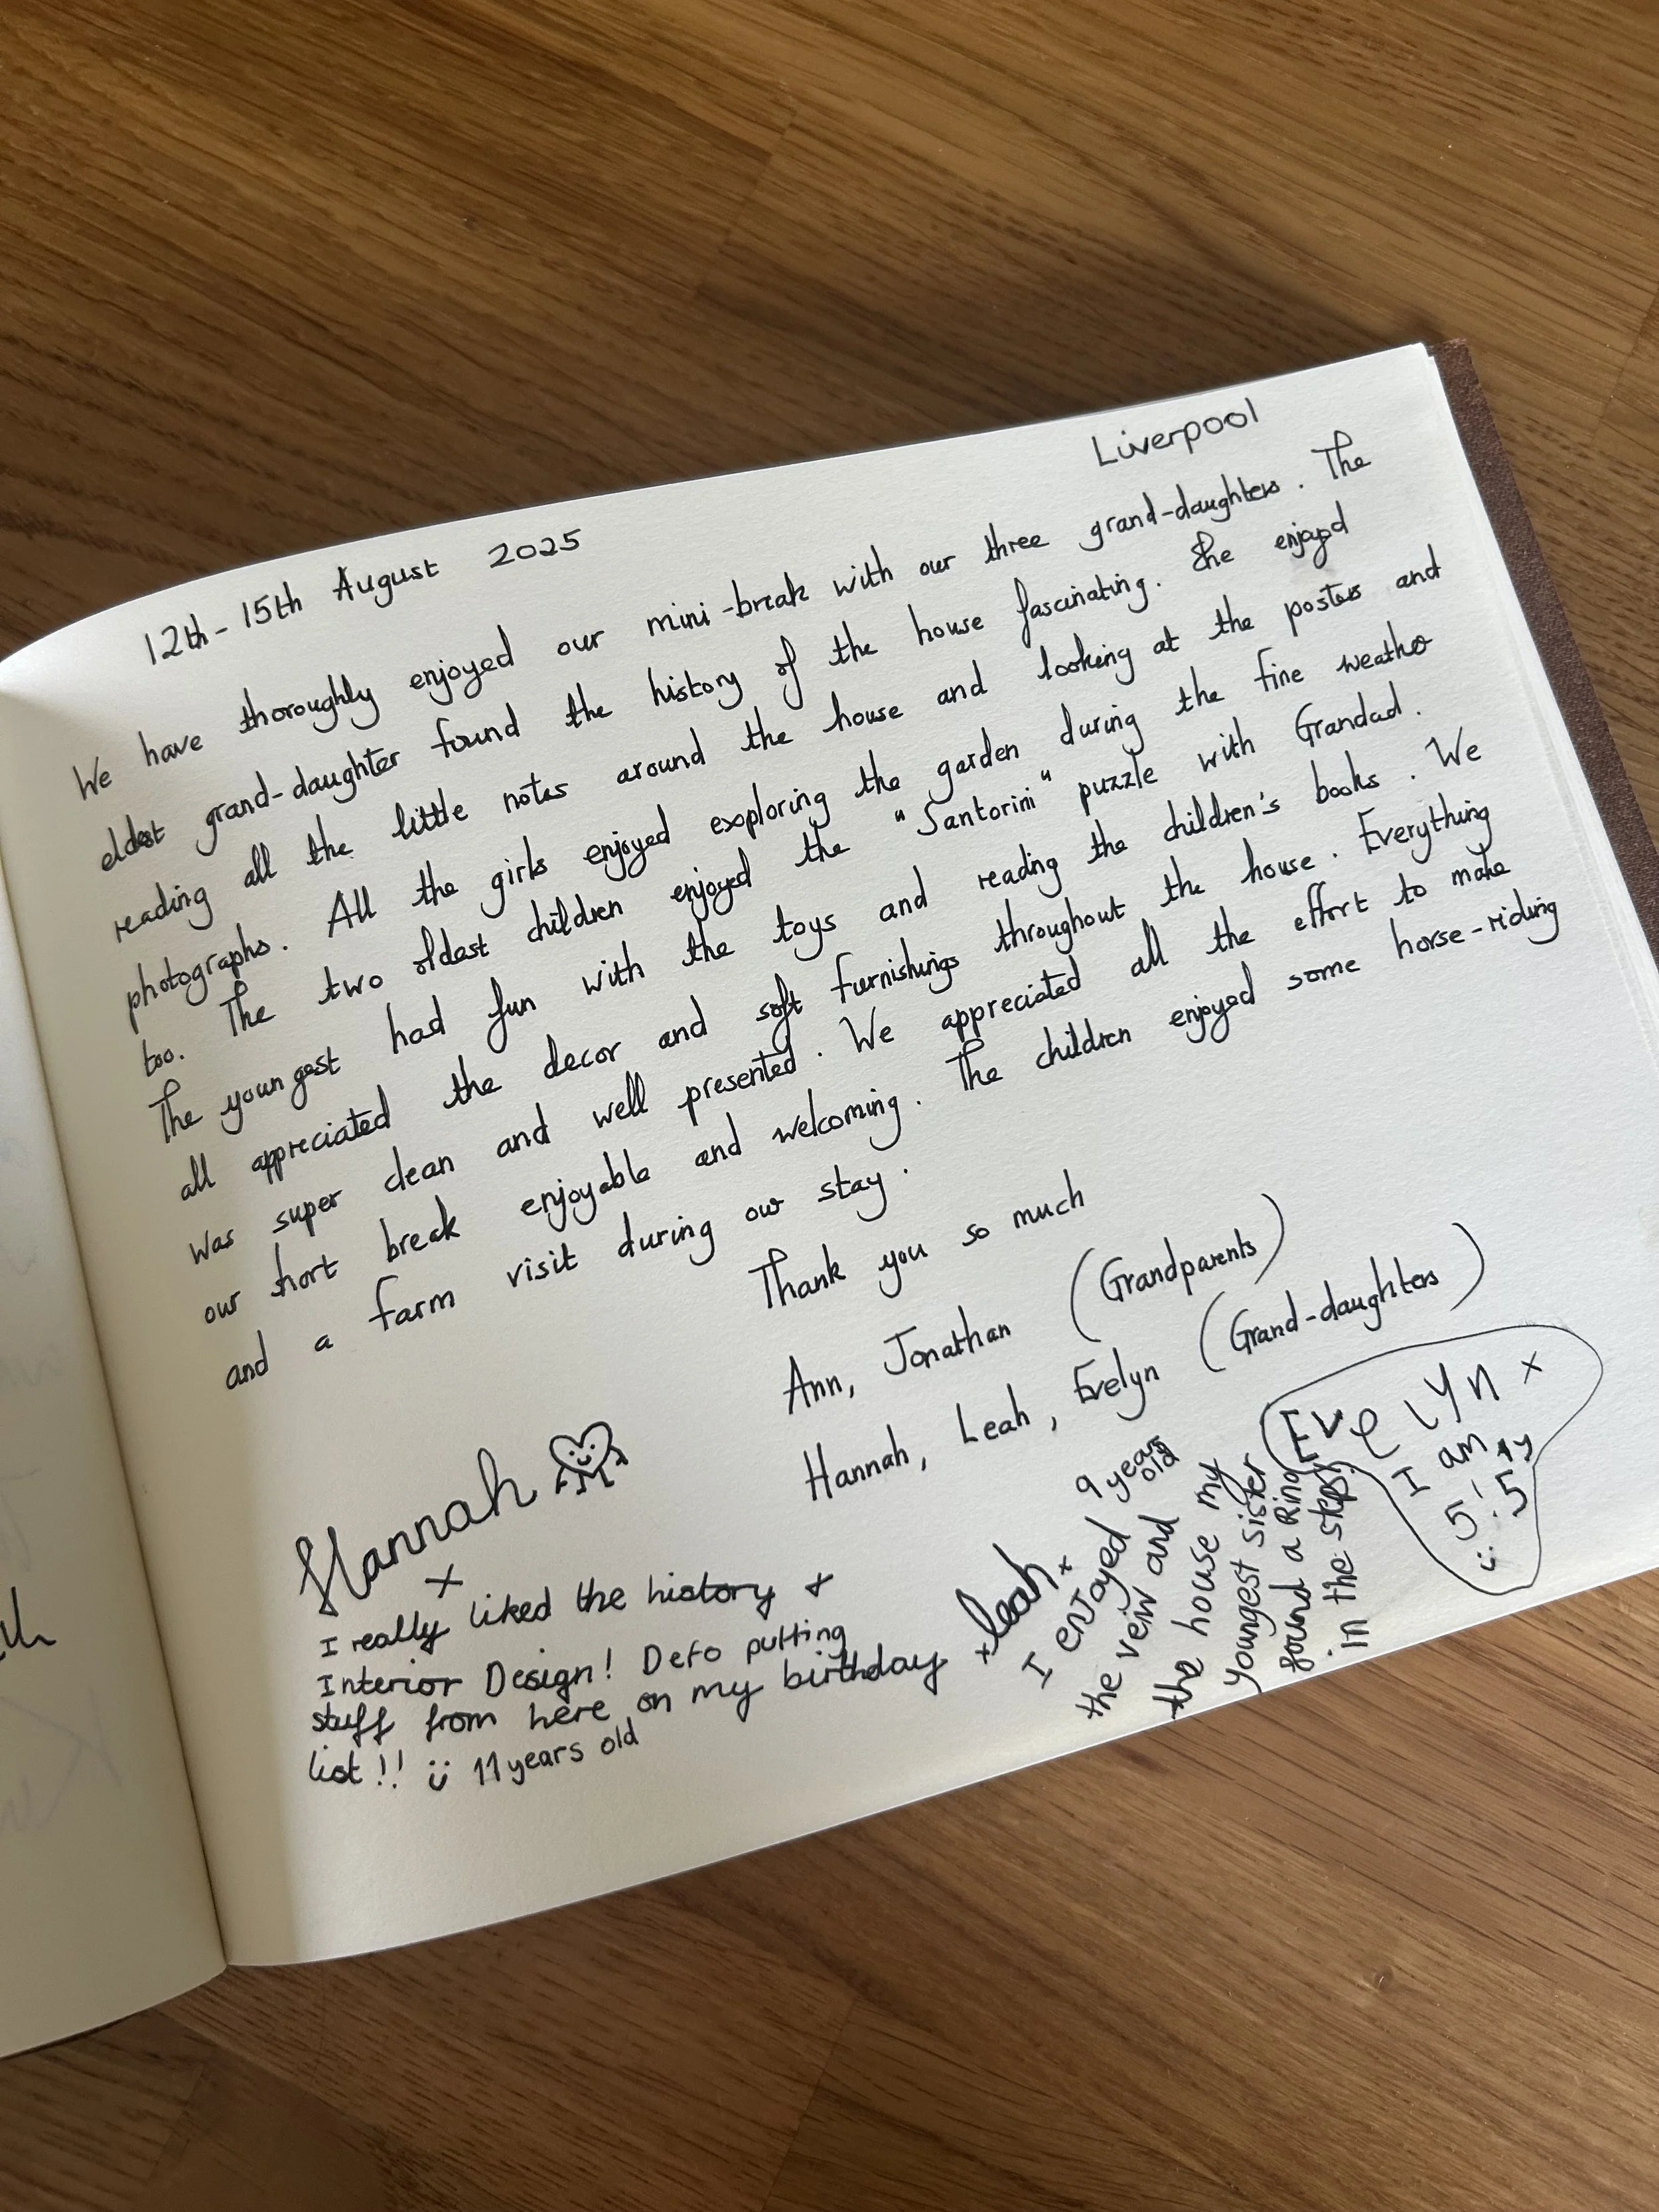 Liverpool
12th - 15th August 2025
We have thoroughly enjoyed our mini-break with our three grand-daughters. The
eldest grand-daughter found the history of the house fascinating. She enjoyed
reading all the little notes around the house and looking at the posters and
photographs. All the girls enjoyed exploring the garden during the fine weather
too. The two oldest children enjoyed the "Santorini" puzzle with Grandad.
The youngest had fun with the toys and reading the children's books. We
all appreciated the decor and soft furnishings throughout the house. Everything
was super clean and well presented. We appreciated all the effort to make
our short break enjoyable and welcoming. The children enjoyed some horse-riding
and a farm visit during our stay.
Thank you so much
Ann, Jonathan (Grandparents)
Hannah, Leah, Evelyn (Grand-daughters)
Hannah
x
I really liked the history +
Interior Design! Defo putting
stuff from here on my birthday
list!! :) 11 years old
+Leah+ 9 years old
I enjoyed
the veiw and
the house my
youngest sister
found a Ring
in the steps.
Evelyn x
I am
5! 5
:)